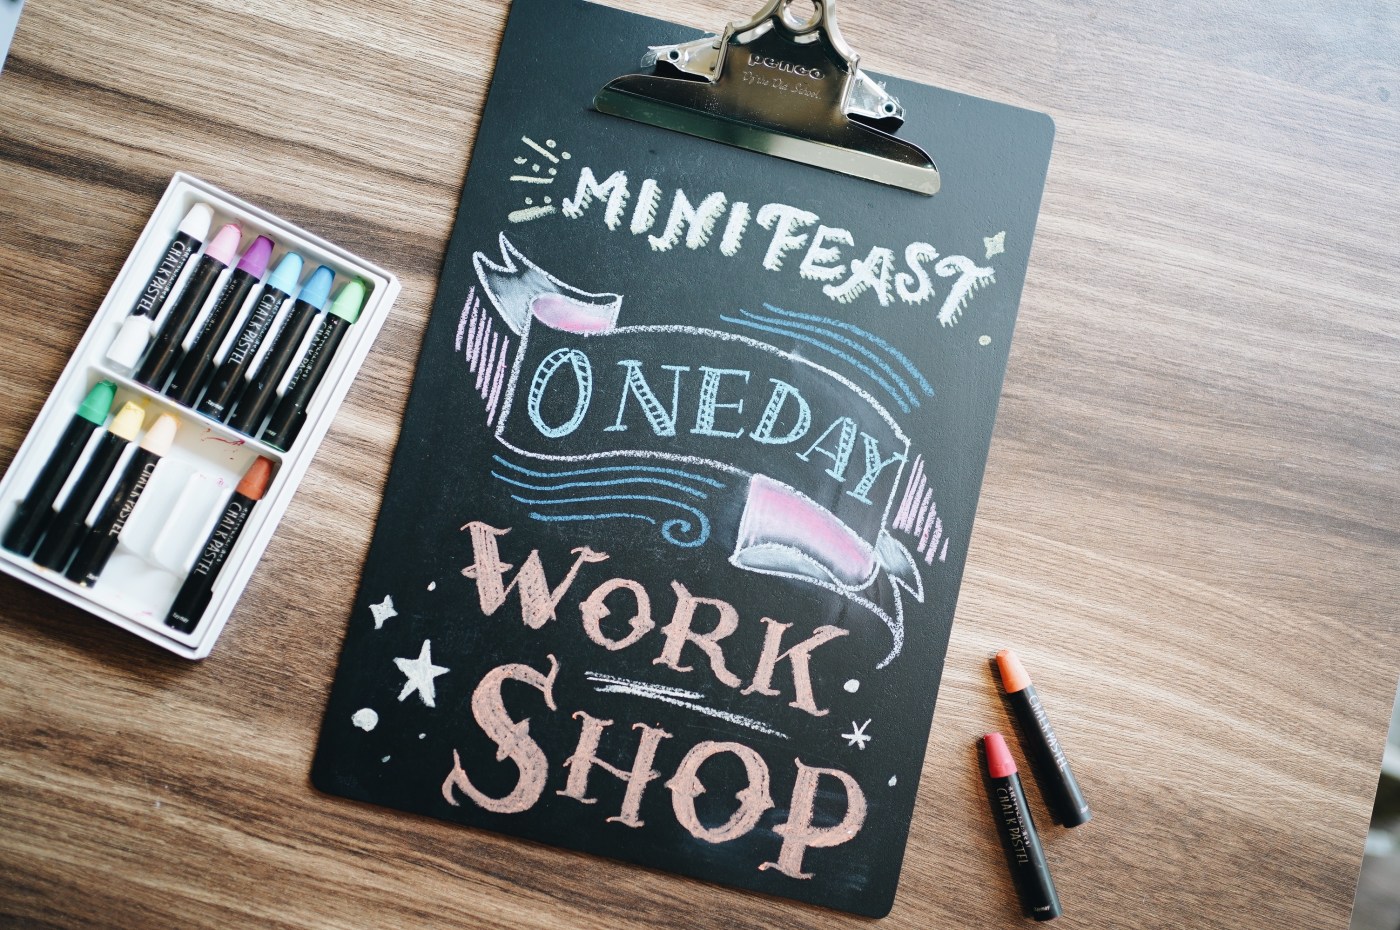 penco
MINI FEAST
ONEDAY
WORK
SHOP
CHALK PASTEL
CHALK PASTEL
CHALK PASTEL
CHALK PASTEL
CHALK PASTEL
CHALK PASTEL